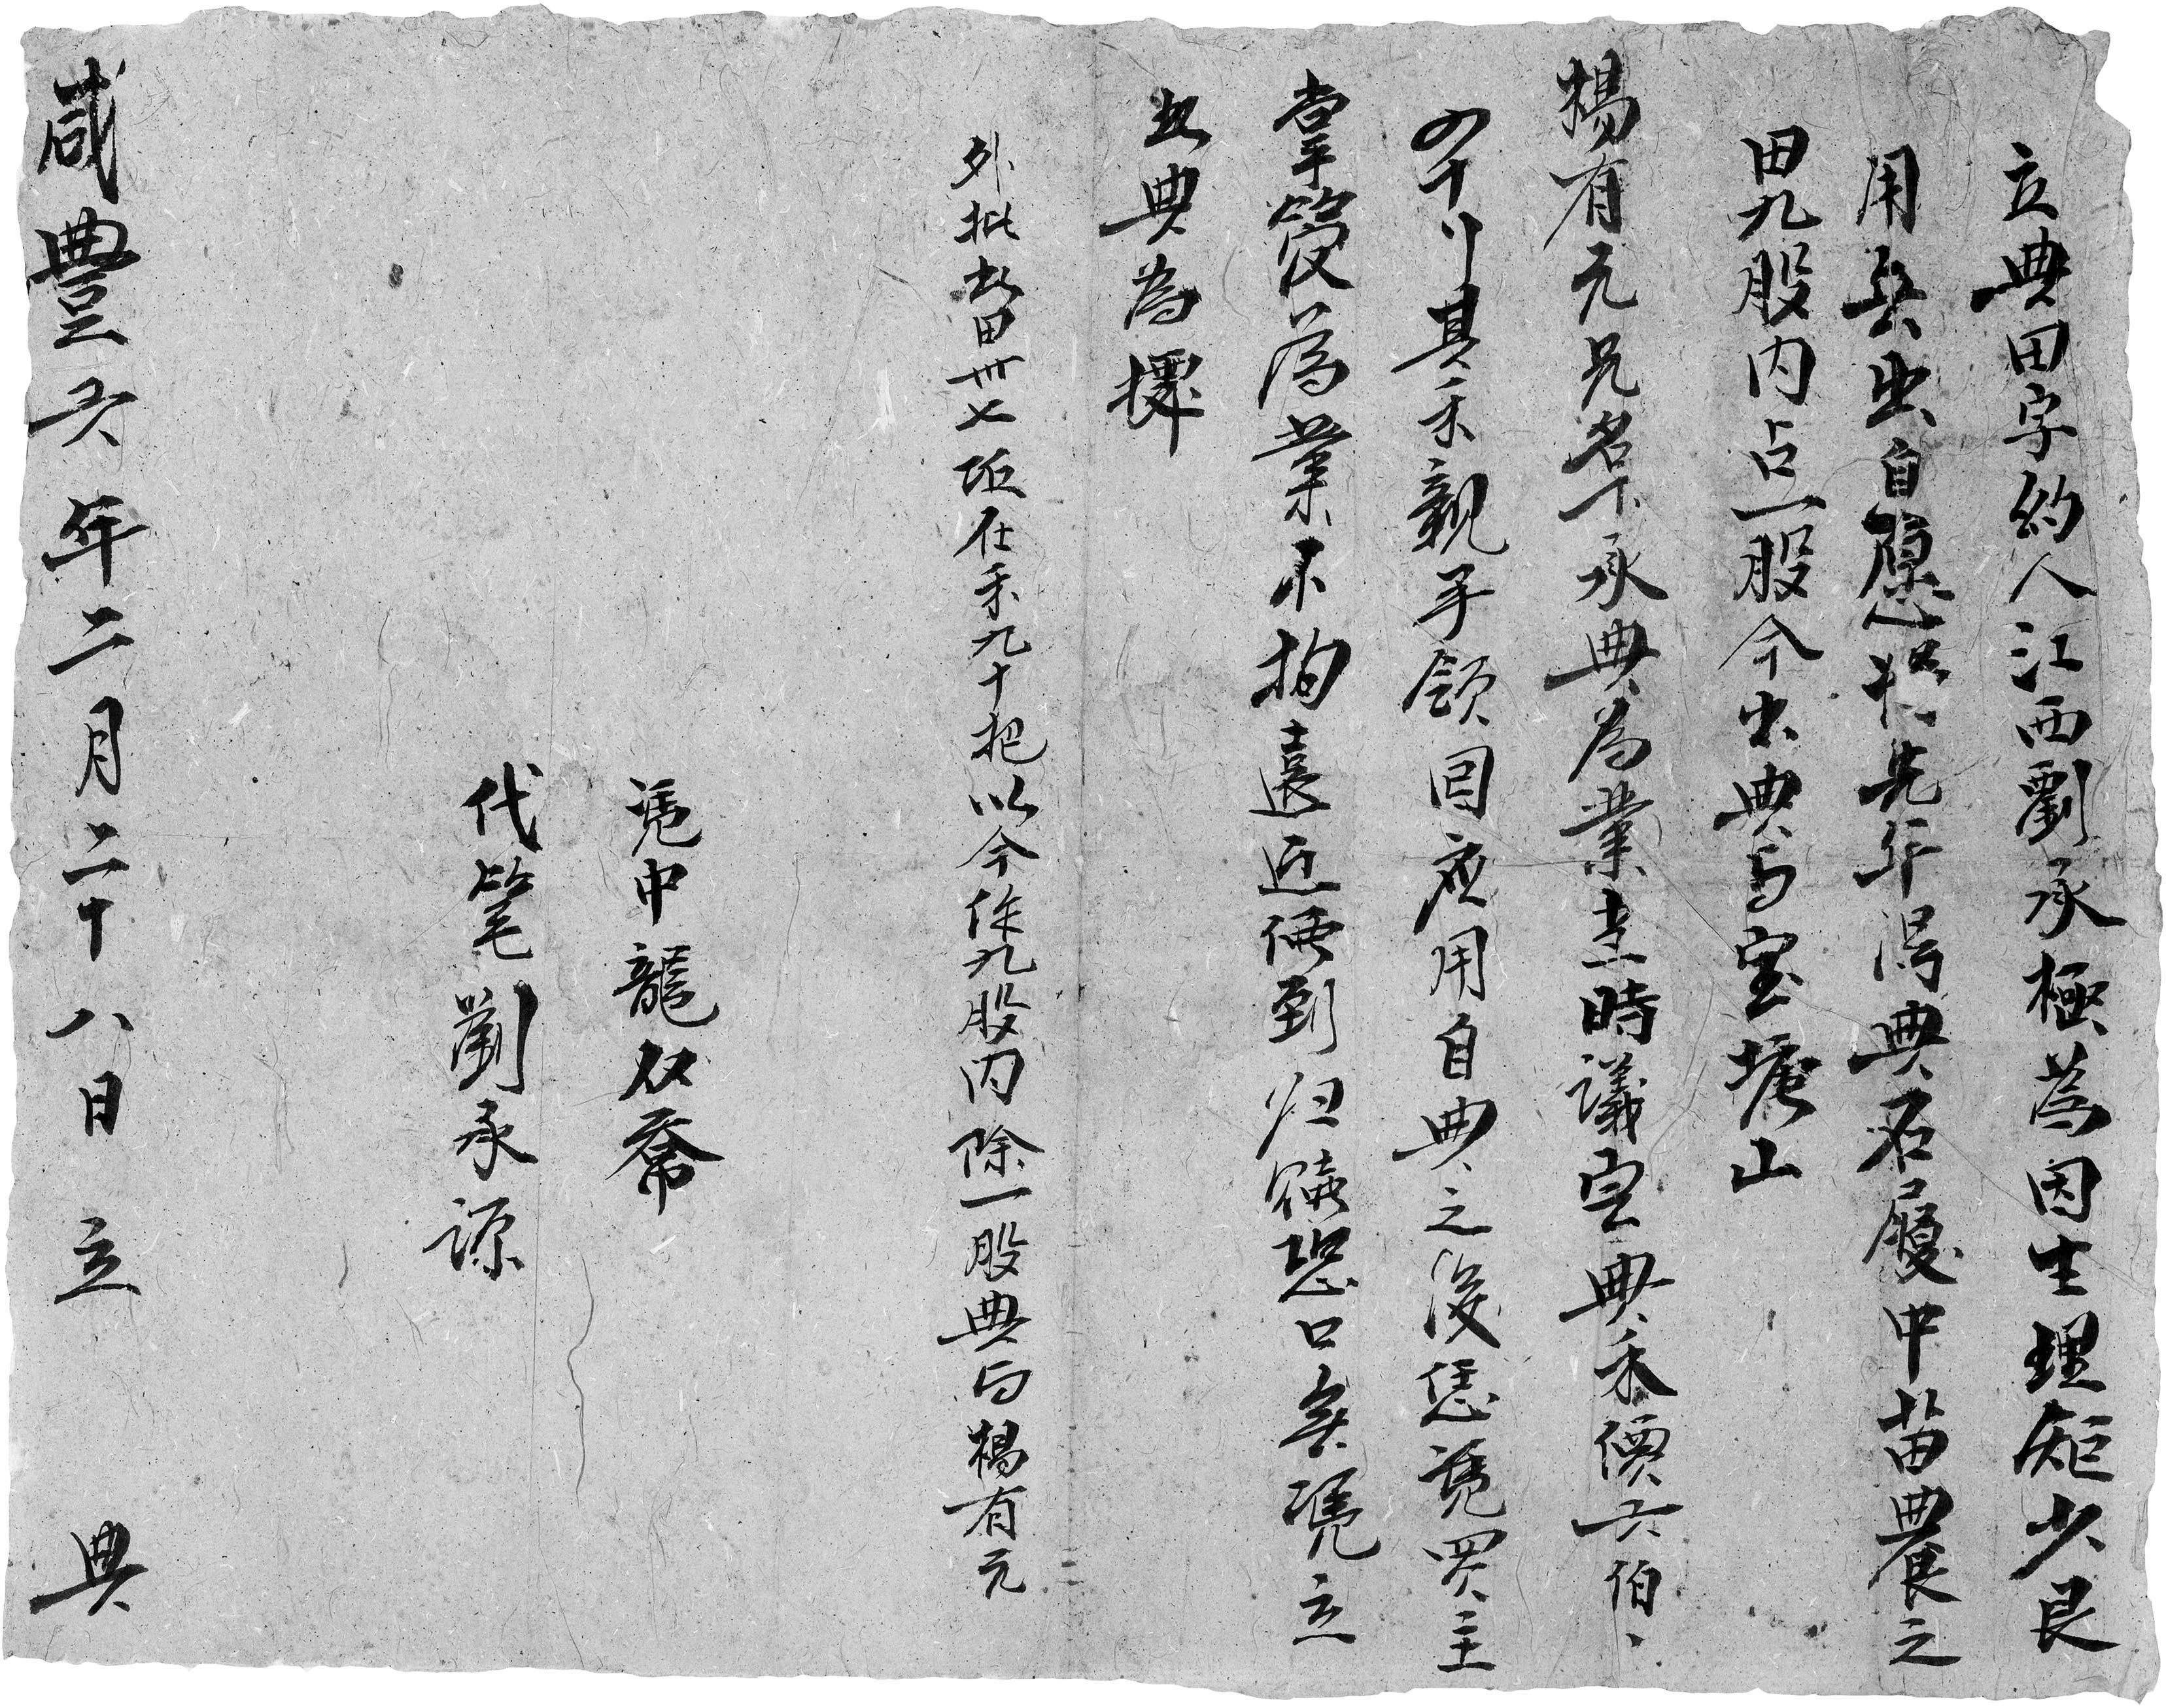 立典田字約人江西劉承極為因生理矩少艮
用無出自愿將先年得典名屢中苗農之
田九股内占一股今出典與宝塘山
楊有元兄名下承典為業主時議定典禾價六伯
四十刂其禾親手領回應用自典之後恁憑買主
掌管為業不拘遠近備到归贖恐口無憑立
此典為據
外批故田卅七坵在禾九十把以今作九股内除一股典与楊有元
憑中龍奴喬
代筆劉承源
咸豐六年二月二十八日立典